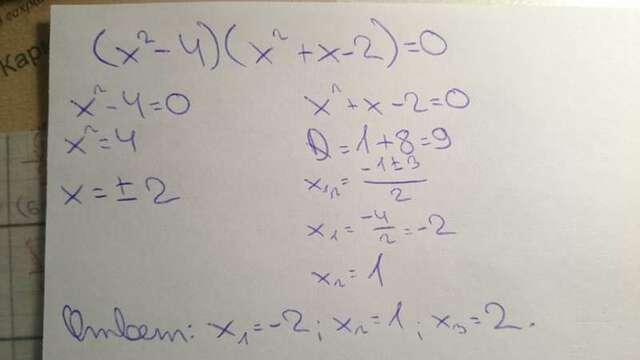 (x²-4)(x²+x-2)=0
x²-4=0
x²=4
x=±2
x²+x-2=0
D=1+8=9
x₁,₂=\frac{-1±3}{2}
x₁=\frac{-4}{2}=-2
x₂=1
Ответ: x₁=-2; x₂=1; x₃=2.